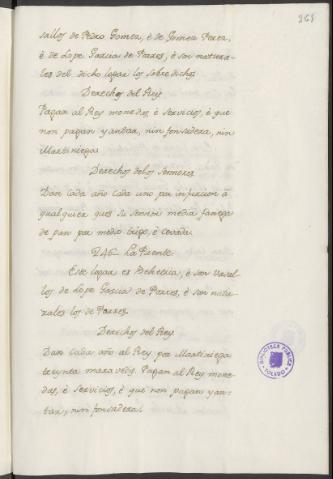 268
sallos de Pedro Gomez, é de Gomez Perez,
é de Lope Garcia de Porres, é son natura-
les del dicho logar los sobredichos
Derechos del Rey
Pagan al Rey monedas é servicios, é que
non pagan yantar, nin fonsadera, nin
Martiniega.
Derechos delos Sennores
Dan cada año cada uno por infurcion á
qualquier que es su sennor media fanega
de pan por medio trigo, é cevada.
246 La Puente
Este logar es Behetria, é son vasal-
los de Lope Garcia de Porres, é son natu-
rales los de Porres.
Derechos del Rey
Dan cada año al Rey por Martiniega
treynta maravedis. Pagan al Rey mone-
das, é servicios, é que non pagan yan-
tar, nin fonsadera.
BIBLIOTECA PUBLICA
TOLEDO